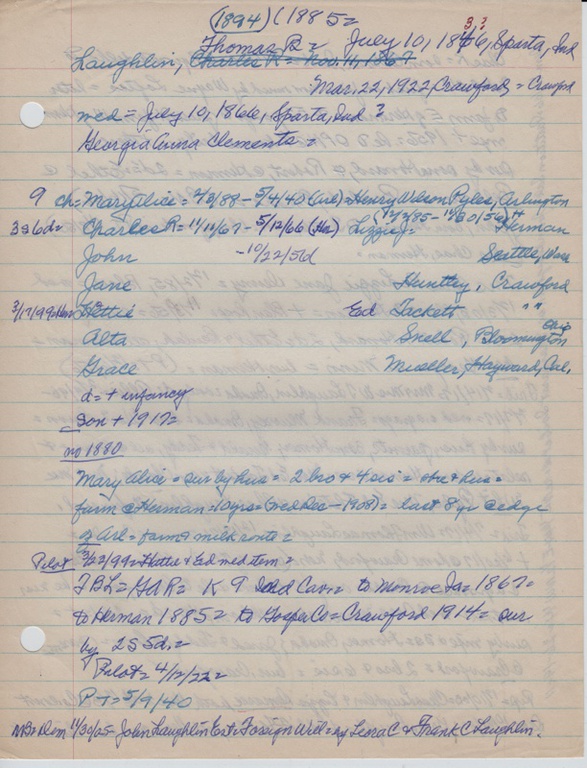 (1894) (1885=
3?
Thomas B= July 10, 1866, Sparta, Ind
Laughlin, Charles R= Nov. 11, 1867
Mar. 22, 1922, Crawford, = Crawford
med= July 10, 1866, Sparta, Ind ?
Georgia Anna Clements=
9 ch= Mary Alice= 4/8/88 - 5/4/40 (Arl)= Henry Wilson Pyles, Arlington
3s6d= Charles R= 11/11/67 - 5/12/66 (Her) Lizzie J= (12/7/85- 11/30/56)+ Herman
John - 10/22/56d Seattle, Wash
Jane Huntley, Crawford
3/17/99=Her Hettie Ed Tackett " "
Alta Snell, Bloomington
Grace Mueller, Hayward, Cal.
d=+ infancy
Son + 1917=
no 1880
Mary Alice= sur by hus= 2 bro & 4 sis=
farm @ Herman= 10 yrs= (med Dec - 1908)= last 8 yr @ edge
of Arl= farm & milk route=
Pilot 3/22/99= Hettie & Ed med item=
TBL= GAR= K 9 Ind Cav= to Monroe Ia= 1867=
to Herman 1885= to Gosper Co= Crawford 1914= sur
by 2S 5d.=
Pilot= 4/12/22=
PT= 5/9/40
Dem 11/30/05= John Laughlin Est= Foreign Will= by Leora C & Frank C Laughlin.